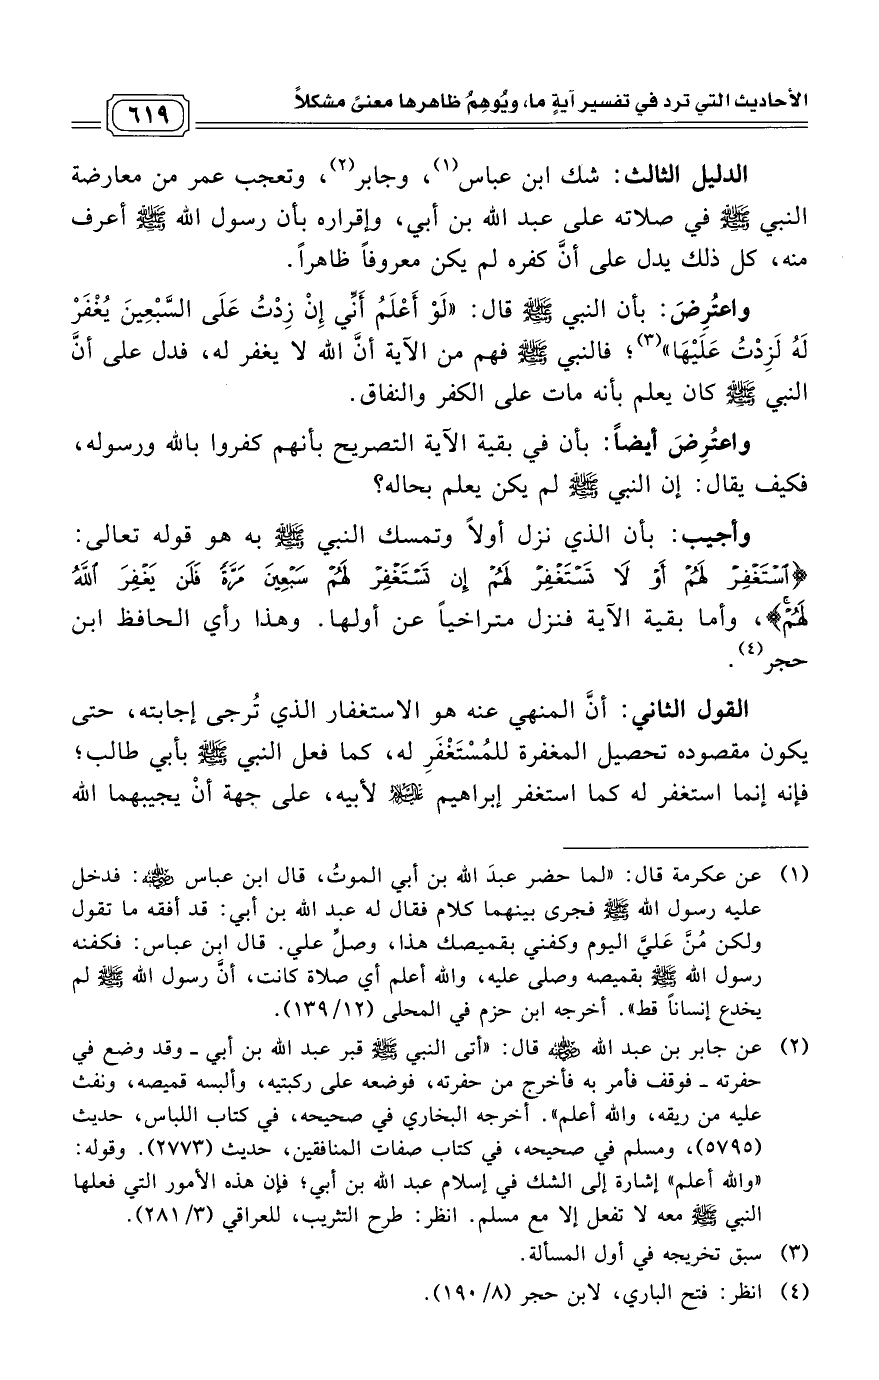 الأحاديث التي ترد في تفسير آيةٍ ما، ويُوهِمُ ظاهرها معنىً مشكلاً
٦١٩
الدليل الثالث: شك ابن عباس(١)، وجابر(٢)، وتعجب عمر من معارضة
النبي ﷺ في صلاته على عبد الله بن أبي، وإقراره بأن رسول الله ﷺ أعرف
منه، كل ذلك يدل على أنَّ كفره لم يكن معروفاً ظاهراً.
واعتُرِضَ: بأن النبي ﷺ قال: «لَوْ أَعْلَمُ أَنِّي إِنْ زِدْتُ عَلَى السَّبْعِينَ يُغْفَرْ
لَهُ لَزِدْتُ عَلَيْهَا»(٣)؛ فالنبي ﷺ فهم من الآية أنَّ الله لا يغفر له، فدل على أنَّ
النبي ﷺ كان يعلم بأنه مات على الكفر والنفاق.
واعتُرِضَ أيضاً: بأن في بقية الآية التصريح بأنهم كفروا بالله ورسوله،
فكيف يقال: إن النبي ﷺ لم يكن يعلم بحاله؟
وأجيب: بأن الذي نزل أولاً وتمسك النبي ﷺ به هو قوله تعالى:
﴿ٱسْتَغْفِرْ لَهُمْ أَوْ لَا تَسْتَغْفِرْ لَهُمْ إِن تَسْتَغْفِرْ لَهُمْ سَبْعِينَ مَرَّةً فَلَن يَغْفِرَ ٱللَّهُ
لَهُمْ﴾، وأما بقية الآية فنزل متراخياً عن أولها. وهذا رأي الحافظ ابن
حجر(٤).
القول الثاني: أنَّ المنهي عنه هو الاستغفار الذي تُرجى إجابته، حتى
يكون مقصوده تحصيل المغفرة للمُسْتَغْفَرِ له، كما فعل النبي ﷺ بأبي طالب؛
فإنه إنما استغفر له كما استغفر إبراهيم عليه السلام لأبيه، على جهة أنْ يجيبهما الله
(١) عن عكرمة قال: «لما حضر عبدَ الله بن أبي الموتُ، قال ابن عباس رضي الله عنه: فدخل
عليه رسول الله ﷺ فجرى بينهما كلام فقال له عبد الله بن أبي: قد أفقه ما تقول
ولكن مُنَّ عَليَّ اليوم وكفني بقميصك هذا، وصلِّ علي. قال ابن عباس: فكفنه
رسول الله ﷺ بقميصه وصلى عليه، والله أعلم أي صلاة كانت، أنَّ رسول الله ﷺ لم
يخدع إنساناً قط». أخرجه ابن حزم في المحلى (١٣٩/١٢).
(٢) عن جابر بن عبد الله رضي الله عنه قال: «أتى النبي ﷺ قبر عبد الله بن أبي ـ وقد وضع في
حفرته ـ فوقف فأمر به فأخرج من حفرته، فوضعه على ركبتيه، وألبسه قميصه، ونفث
عليه من ريقه، والله أعلم». أخرجه البخاري في صحيحه، في كتاب اللباس، حديث
(٥٧٩٥)، ومسلم في صحيحه، في كتاب صفات المنافقين، حديث (٢٧٧٣). وقوله:
«والله أعلم» إشارة إلى الشك في إسلام عبد الله بن أبي؛ فإن هذه الأمور التي فعلها
النبي ﷺ معه لا تفعل إلا مع مسلم. انظر: طرح التثريب، للعراقي (٢٨١/٣).
(٣) سبق تخريجه في أول المسألة.
(٤) انظر: فتح الباري، لابن حجر (١٩٠/٨).